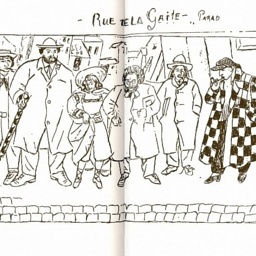 - RUE DE LA GAITE - PARAD